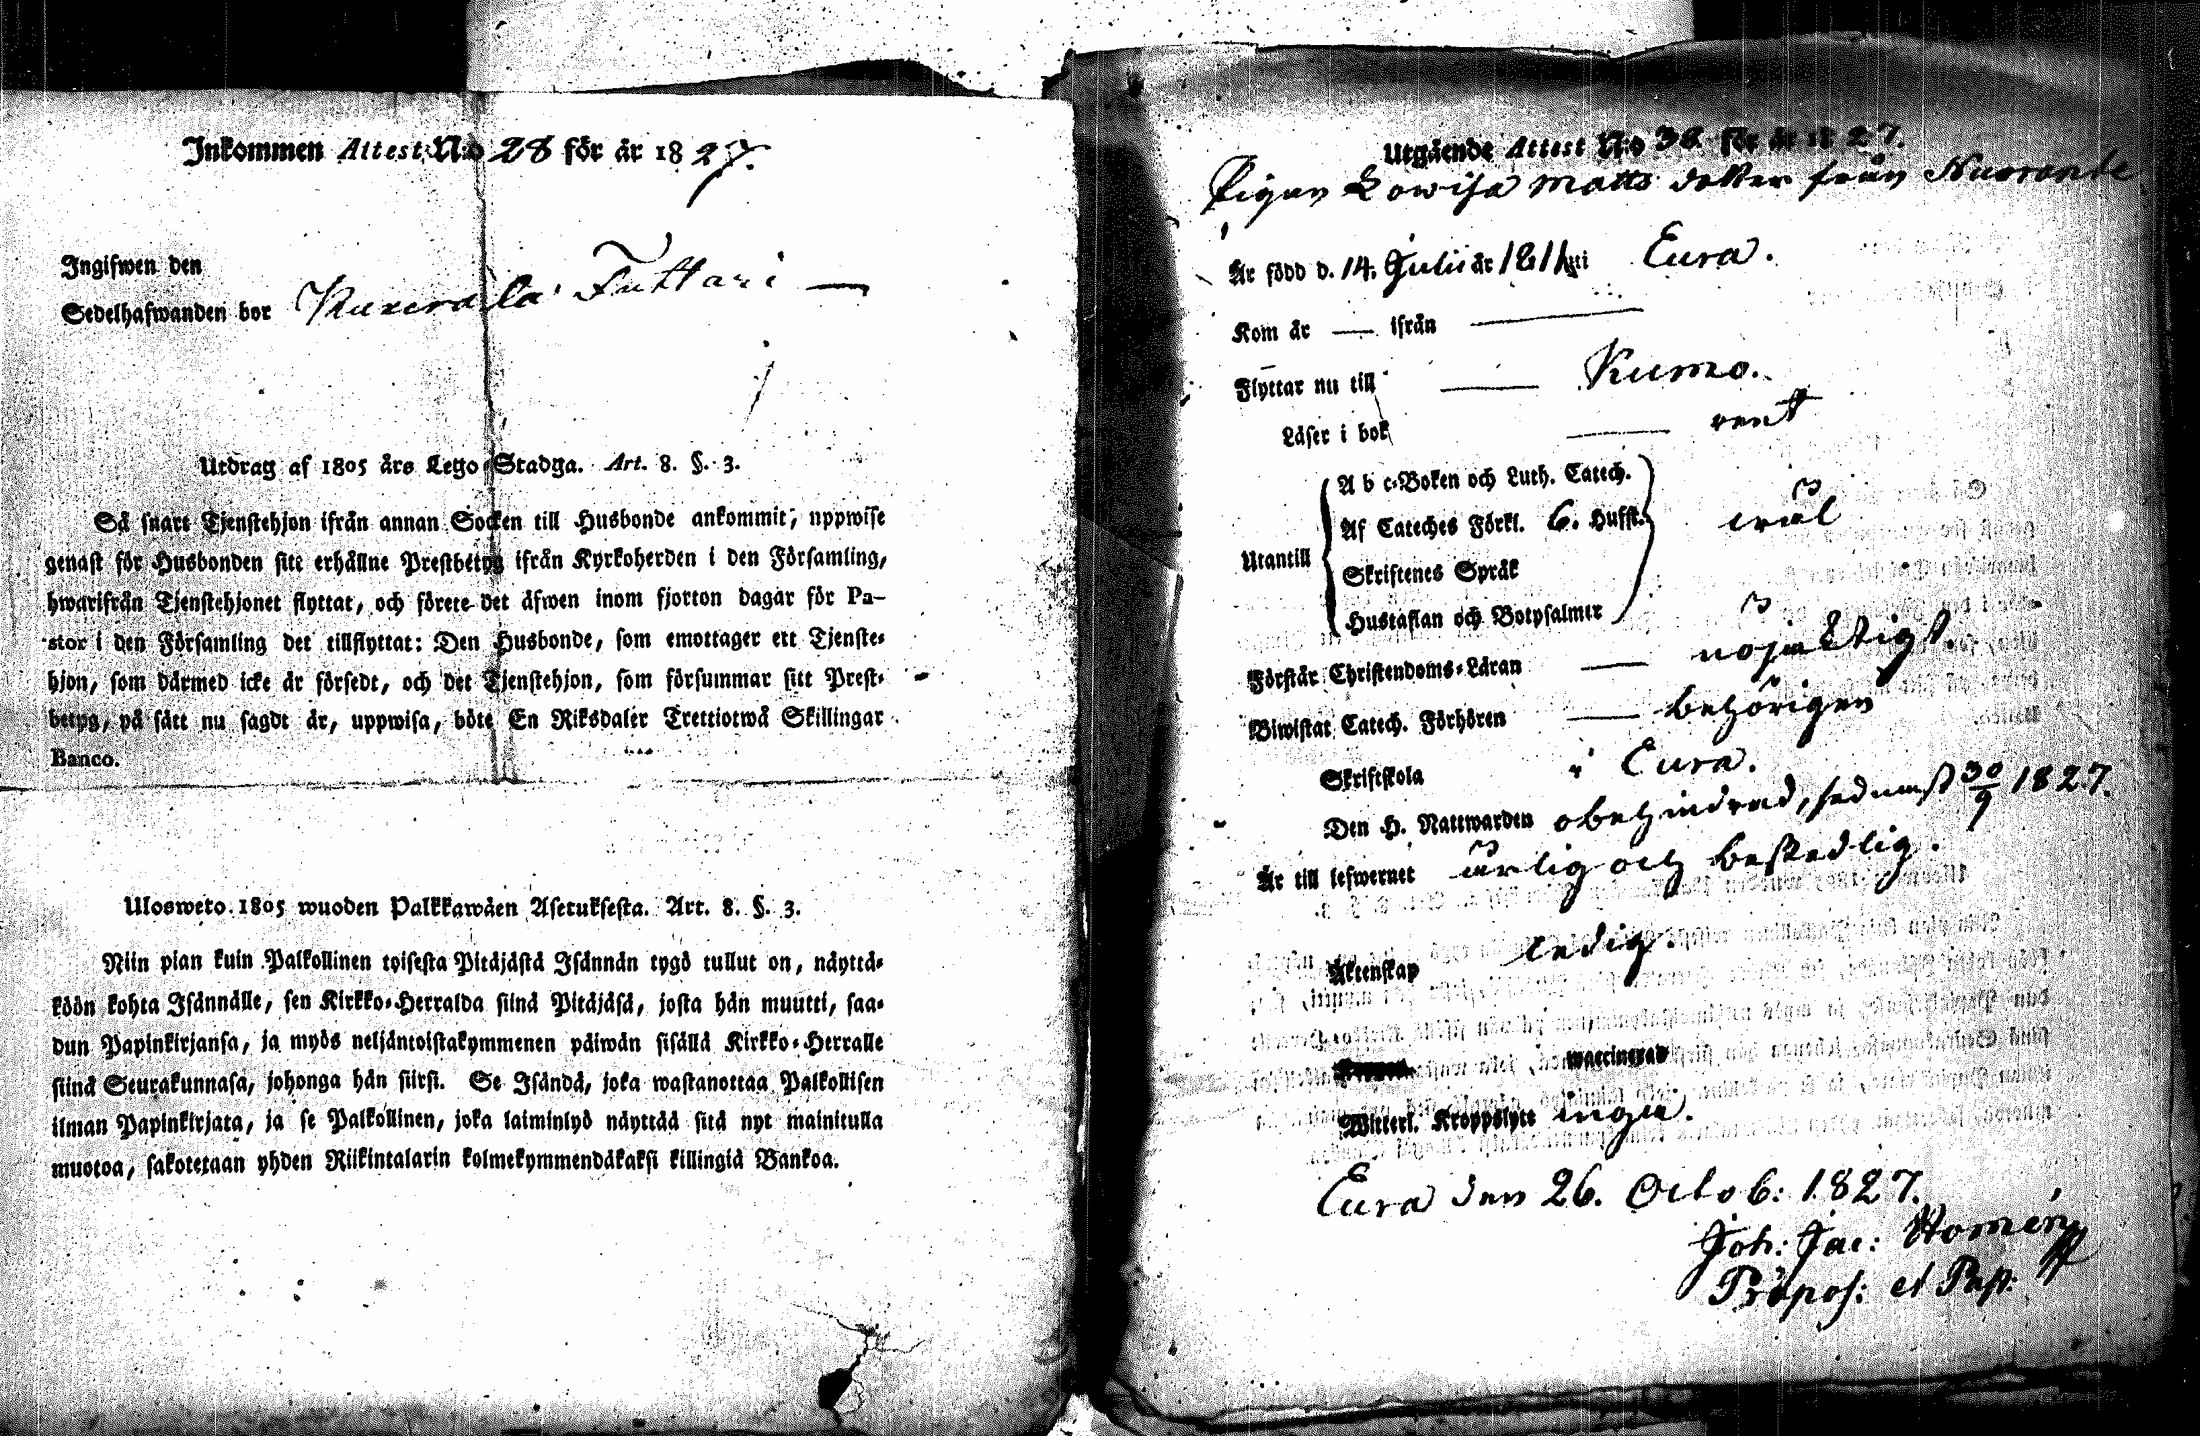 Inkommen Attest N:o 28 för år 1827.
Ingifwen den
Sedelhafwanden bor Kukrola Tuttari —
Utdrag af 1805 års Lego-Stadga. Art. 8. §. 3.
Så snart Tjenstehjon ifrån annan Socken till Husbonde ankommit, uppwise
genast för Husbonden sitt erhållne Prestbetyg ifrån Kyrkoherden i den Församling,
hwarifrån Tjenstehjonet flyttat, och förete det äfwen inom fjorton dagar för Pa-
stor i den Församling det tillflyttat: Den Husbonde, som emottager ett Tjenste-
hjon, som därmed icke är försedt, och det Tjenstehjon, som försummar sitt Prest-
betyg, på sätt nu sagdt är, uppwisa, böte En Riksdaler Trettiotwå Skillingar
Banco.
Ulosweto 1805 wuoden Palkkawäen Asetuksesta. Art. 8. §. 3.
Niin pian kuin Palkollinen toisesta Pitäjästä Isännän tygö tullut on, näyttä-
köön kohta Isännälle, sen Kirkko-Herralda siinä Pitäjäsä, josta hän muutti, saa-
dun Papinkirjansa, ja myös neljäntoistakymmenen päiwän sisällä Kirkko-Herralle
siinä Seurakunnasa, johonga hän siirsi. Se Isändä, joka wastanottaa Palkollisen
ilman Papinkirjata, ja se Palkollinen, joka laiminlyö näyttää sitä nyt mainitulla
muotoa, sakotetaan yhden Riikintalarin kolmekymmendäkaksi killingiä Bankoa.
Utgående Attest N:o 38 för år 1827.
Pigan Lowisa Matts dotter från
Är född d. 14. Julii år 1811 uti Eura.
Kom år — ifrån —
Flyttar nu till — Kumo.
Läser i bok — rent
Utantill
A b c-Boken och Luth. Catech.
Af Cateches Förkl. 6. Hufst.
Skriftenes Språk
Hustaflan och Botpsalmer
wäl
Förstår Christendoms-Läran — nöjaktigt.
Biwistat Catech. Förhören — behörigen
Skriftskola i Eura.
Den H. Nattwarden obehindrad, sednast 30/9 1827.
Är till lefwernet ärlig och beskedlig.
Äktenskap ledig.
waccinerad
Witterl. Kroppslyte inga.
Eura den 26. Octob: 1827.
Joh: Jac: Homén
Præpos: et Past: